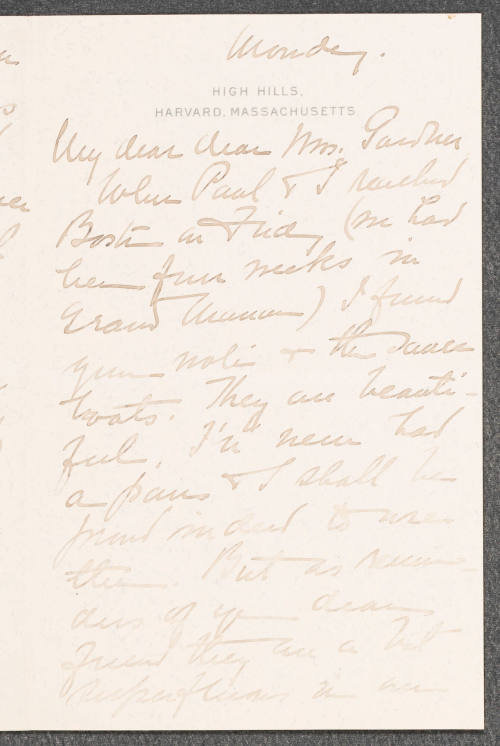 Monday.
HIGH HILLS,
HARVARD, MASSACHUSETTS
My dear dear Mrs. Gardner
When Paul & I reached
Boston on Friday (we had
been four weeks in
Grand Manan) I found
your note & the sauce
boats. They are beauti-
ful. I'd never had
a pair & I shall be
proud indeed to use
them. But as remin-
ders of you dear
friend they are a bit
superfluous in our